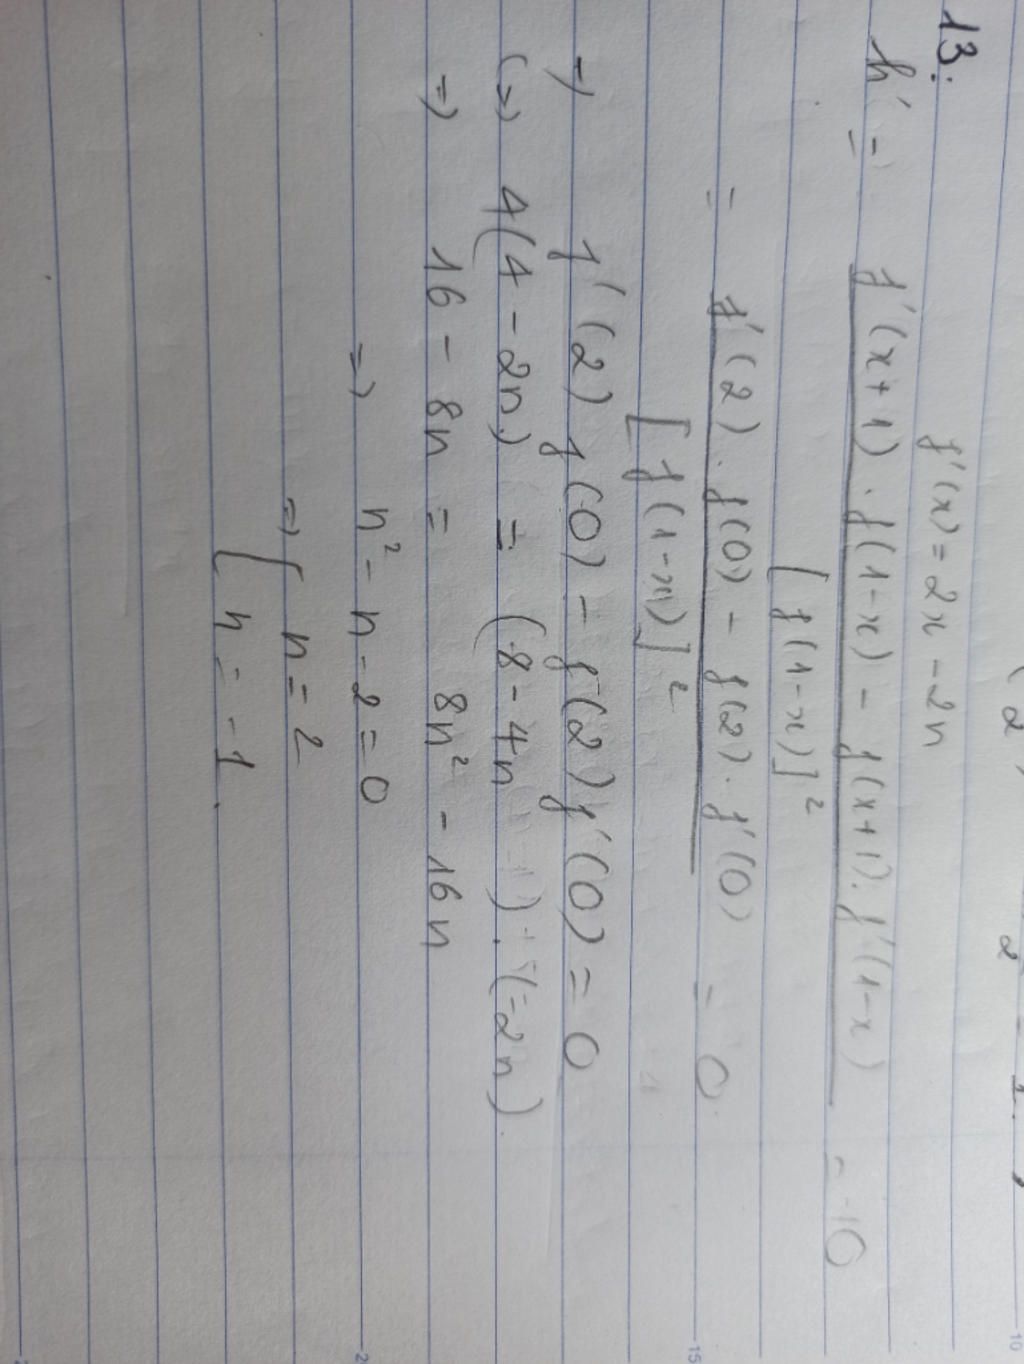 13:
f'(x) = 2x - 2n
h' = f'(x+1) . f(1-x) - f(x+1) . f'(1-x) = 0
[f(1-x)]²
= f'(2) . f(0) - f(2) . f'(0) = 0
[f(1-x)]²
=> f'(2) f(0) - f(2) f'(0) = 0
(=>) 4(4 - 2n) = (8 - 4n) . (-2n)
=> 16 - 8n = 8n² - 16n
=> n² - n - 2 = 0
=> [ n = 2
n = -1